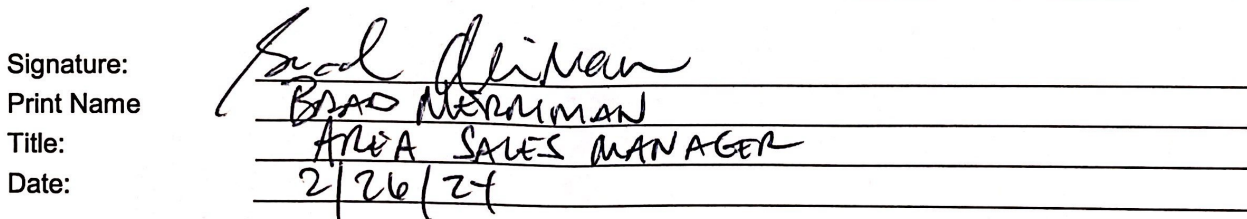 Signature: Brad Merriman
Print Name BRAD MERRIMAN
Title: AREA SALES MANAGER
Date: 2/26/24